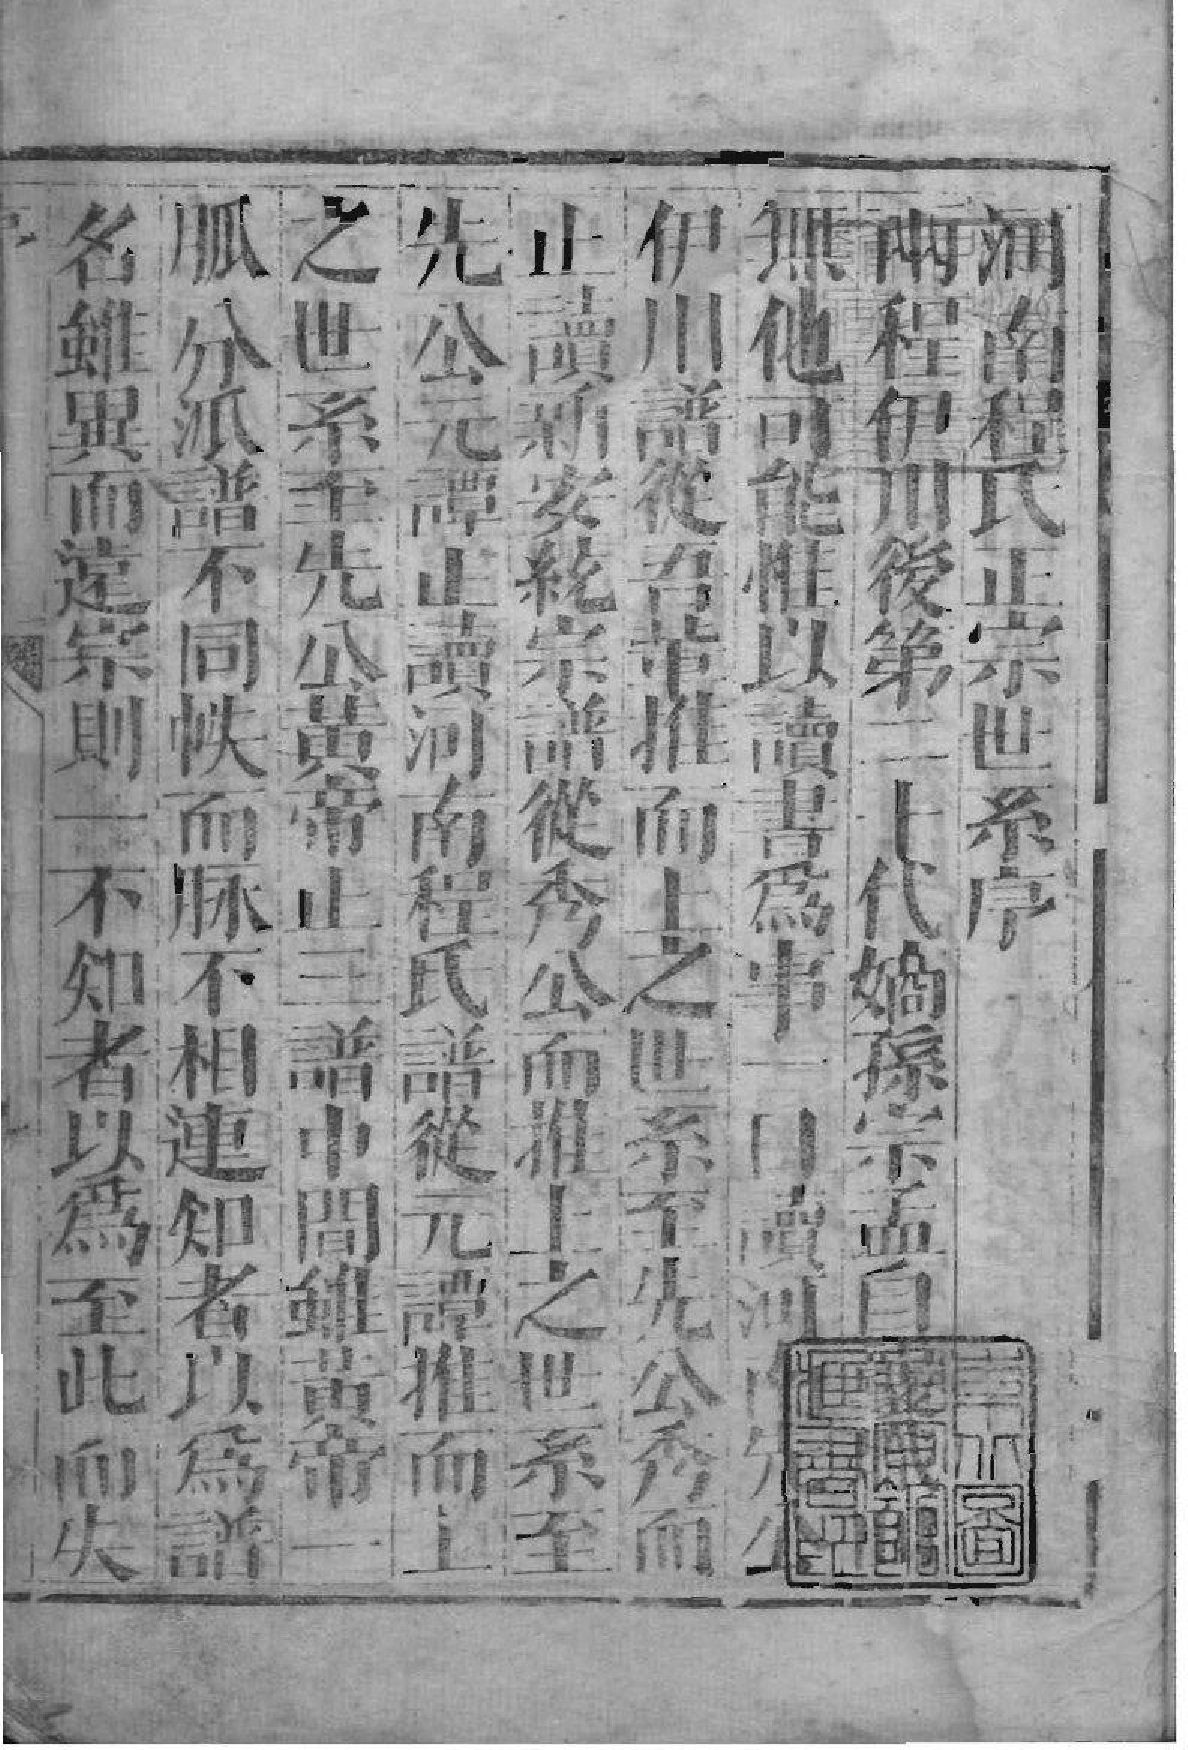 河南程氏正宗世系序
兩程伊川後第二十代嫡孫宗孟自
無他可能惟以讀書為事一日讀河
伊川譜從召革推而上之世系至先公秀而
止讀新安統宗譜從秀公而推上之世系至
先公元譚止讀河南程氏譜從元譚推而上
之世系至先公黃帝止三譜中間雖黃帝一
胍分派譜不同帙而脉不相連知者以為譜
名雖異而蓰宗則一不知者以為至此而失